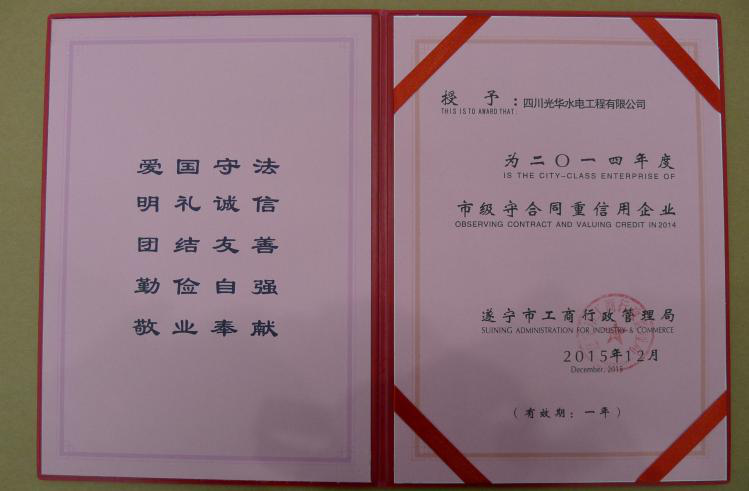 爱国守法
明礼诚信
团结友善
勤俭自强
敬业奉献
授 予：四川光华水电工程有限公司
THIS IS TO AWARD THAT:
为二〇一四年度
IS THE CITY-CLASS ENTERPRISE OF
市级守合同重信用企业
OBSERVING CONTRACT AND VALUING CREDIT IN 2014
遂宁市工商行政管理局
SUINING ADMINISTRATION FOR INDUSTRY & COMMERCE
2015年12月
December, 2015
（有效期：一年）